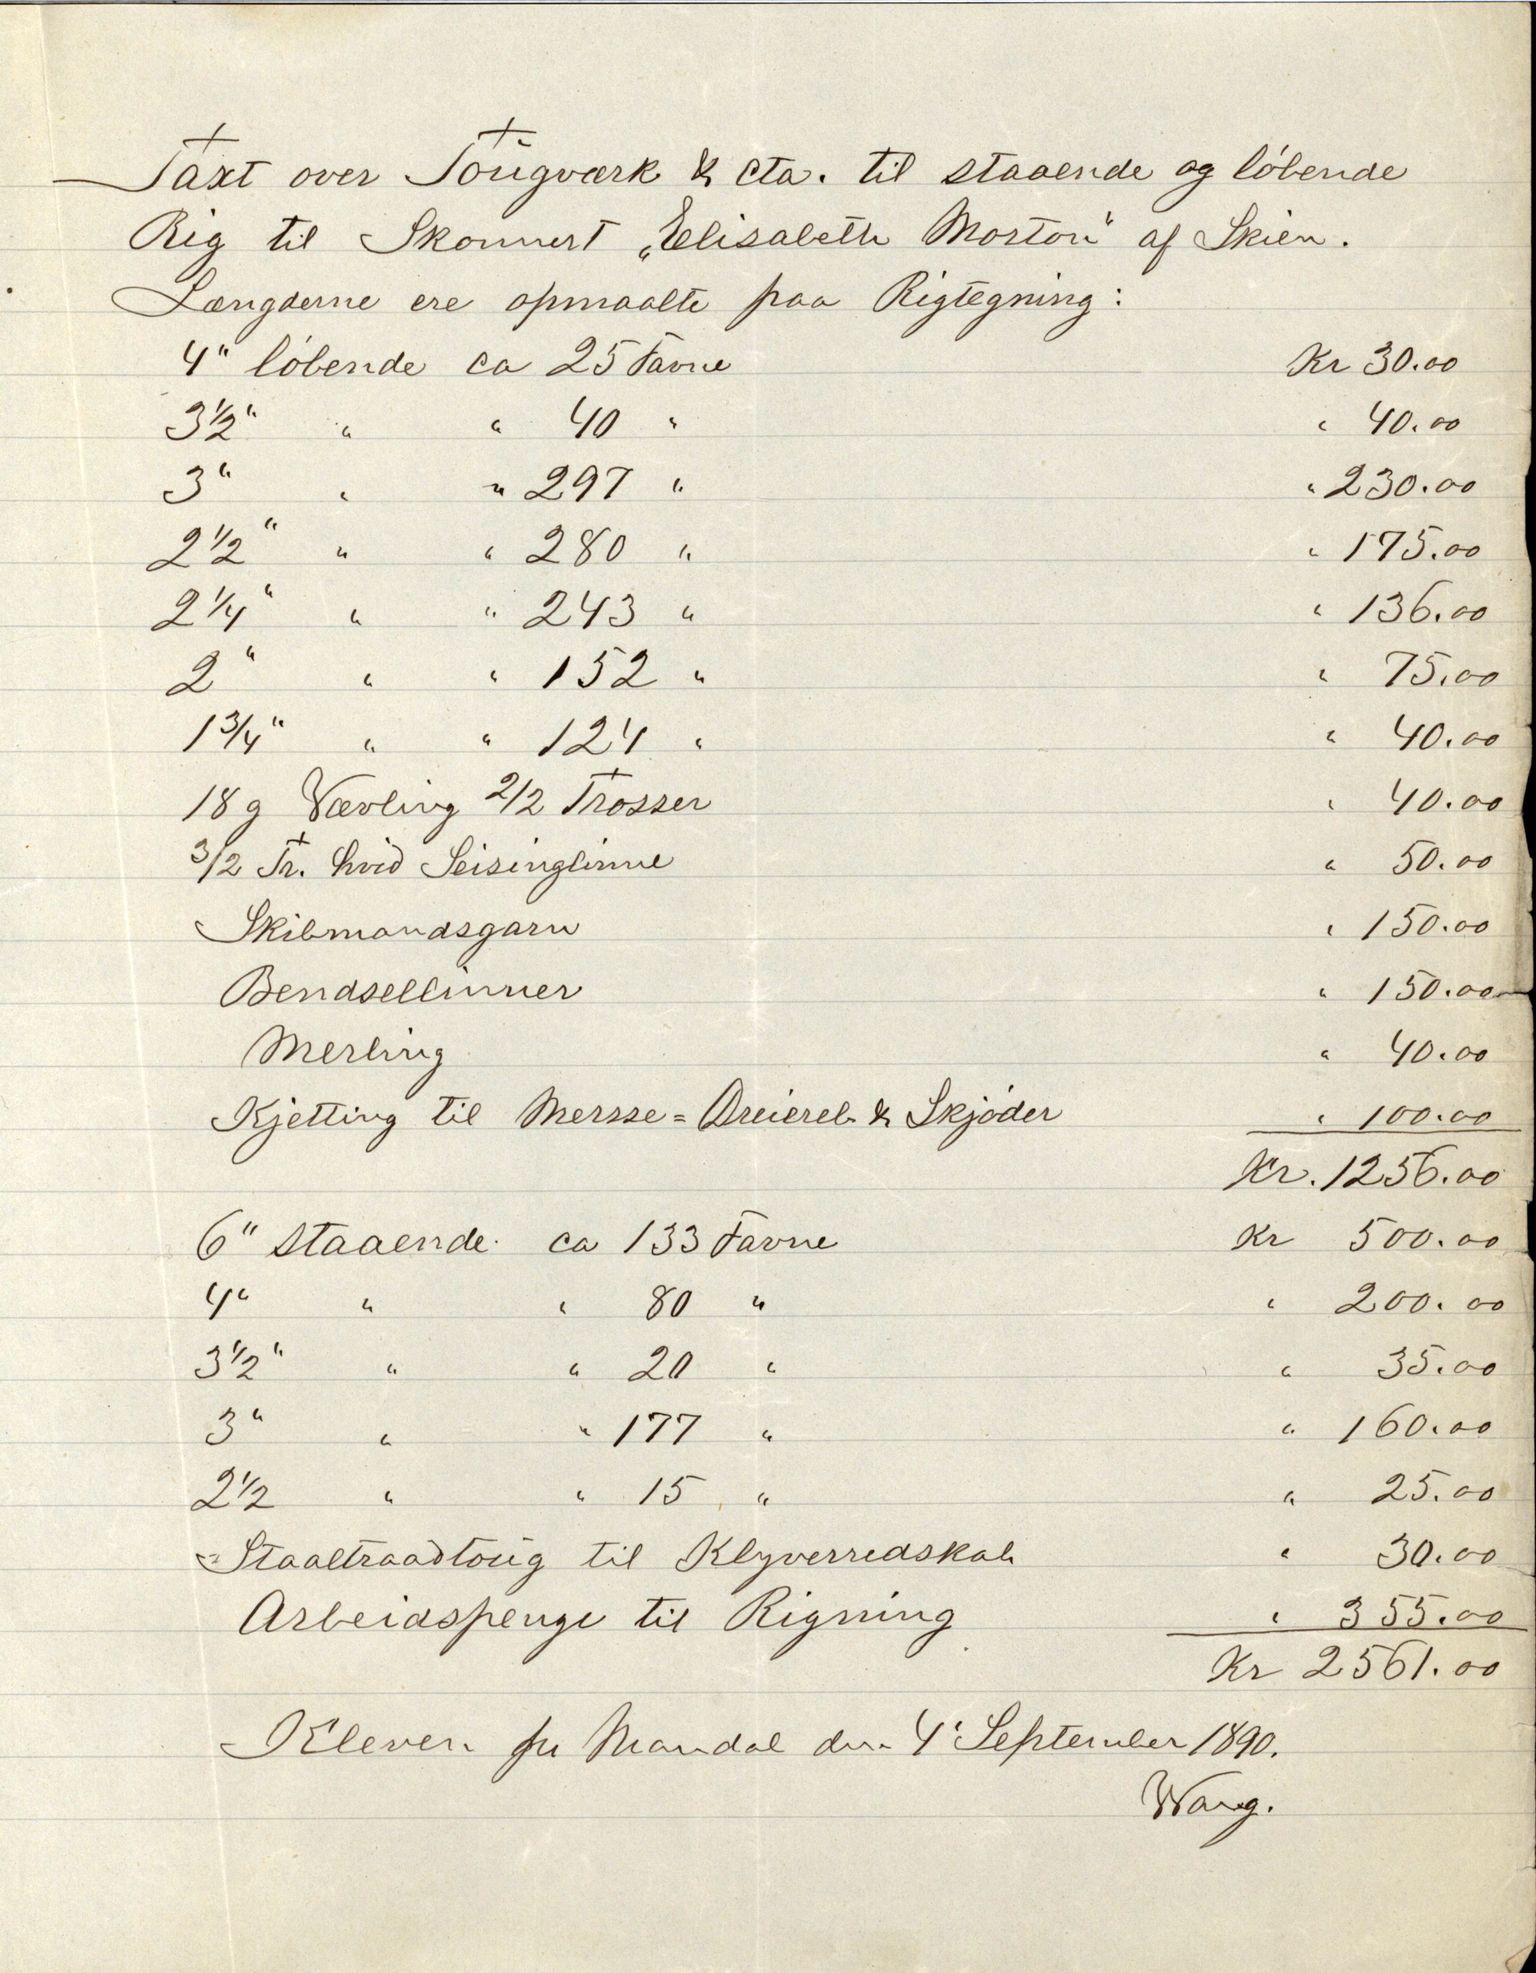 Taxt over Tougværk & cta. til staaende og løbende
Rig til Skonnert „Elisabeth Morton“ af Skien.
Længderne ere opmaalte paa Rigtegning:
4" løbende ca 25 Favne Kr 30.00
3½" " " 40 " " 40.00
3" " " 297 " " 230.00
2½" " " 280 " " 175.00
2¼" " " 243 " " 136.00
2" " " 152 " " 75.00
1¾" " " 124 " " 40.00
18 g Vævling 2/2 Trosser " 40.00
3/2 Tr. hvid Seisinglinne " 50.00
Skibmandsgarn " 150.00
Bendsellinner " 150.00
Merling " 40.00
Kjetting til Mersse= Dreiereb & Skjøder " 100.00
Kr. 1256.00
6" staaende ca 133 Favne Kr 500.00
4" " " 80 " " 200.00
3½" " " 20 " " 35.00
3" " " 177 " " 160.00
2½ " " 15 " " 25.00
Staaltraadtoug til Klyverredskab " 30.00
Arbeidspenge til Rigning " 355.00
Kr 2561.00
Kleven pr Mandal den 4' September 1890.
Wang.